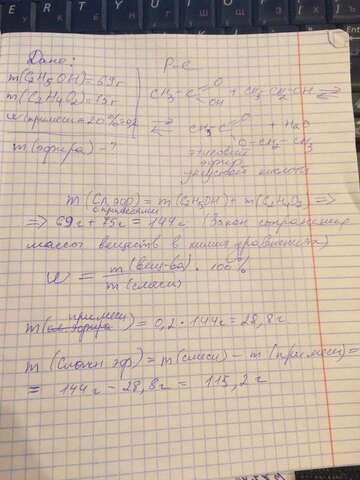 Дано:
m(C₂H₅OH)=69г
m(C₂H₄O₂)=75г
w(примеси)=20%=0,2
m(эфира)-?
Р-е
CH₃-C O OH + CH₃CH₂OH ⇄
⇄ CH₃C O O-CH₂-CH₃ + H₂O
этиловый
эфир
уксусной кислоты
m(Сл. эф) = m(C₂H₅OH) + m(C₂H₄O₂) =>
с примесями
=> 69г + 75г = 144г (Закон сохранения
массы веществ в химич. уравнениях)
W = m(вещ-ва) / m(смеси) · 100%
m(примеси) = 0,2 · 144г = 28,8г
m(Сложн эф) = m(смеси) - m(примеси) =
= 144г - 28,8г = 115,2г